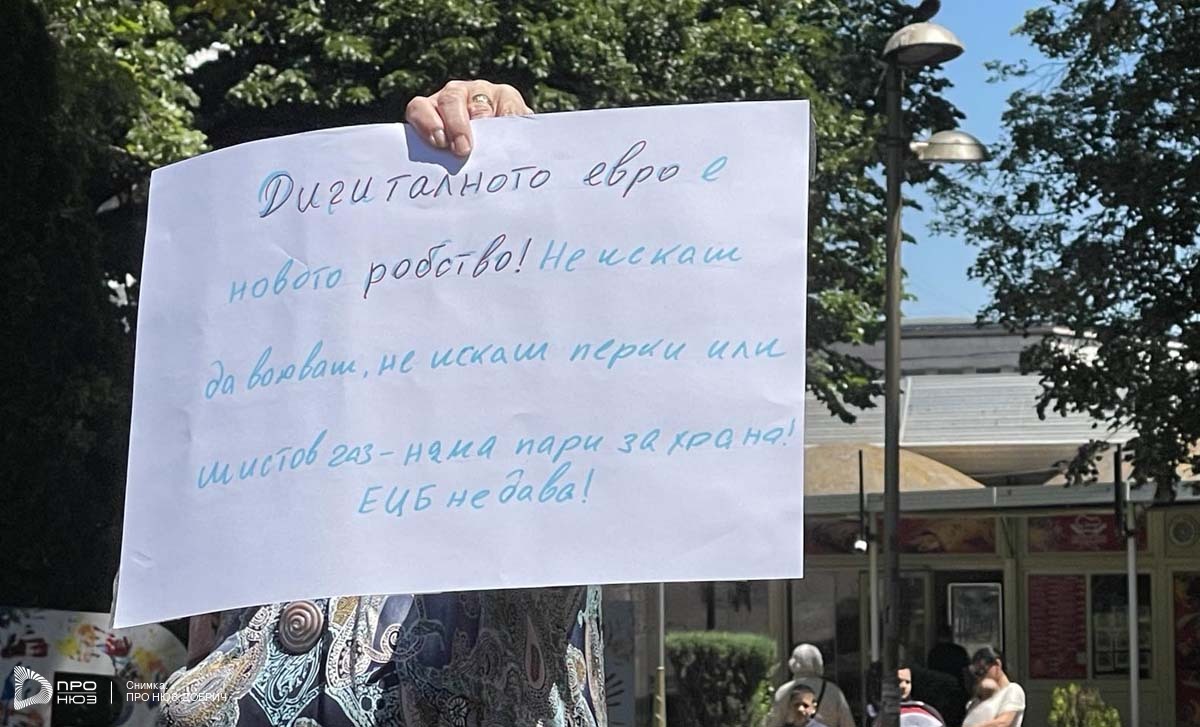 Дигиталното евро е
новото робство! Не искаш
да воюваш, не искаш перки или
шистов газ – няма пари за храна!
ЕЦБ не дава!
ПРО
НЮЗ
Снимка:
ПРО НЮЗ ДОБРИЧ